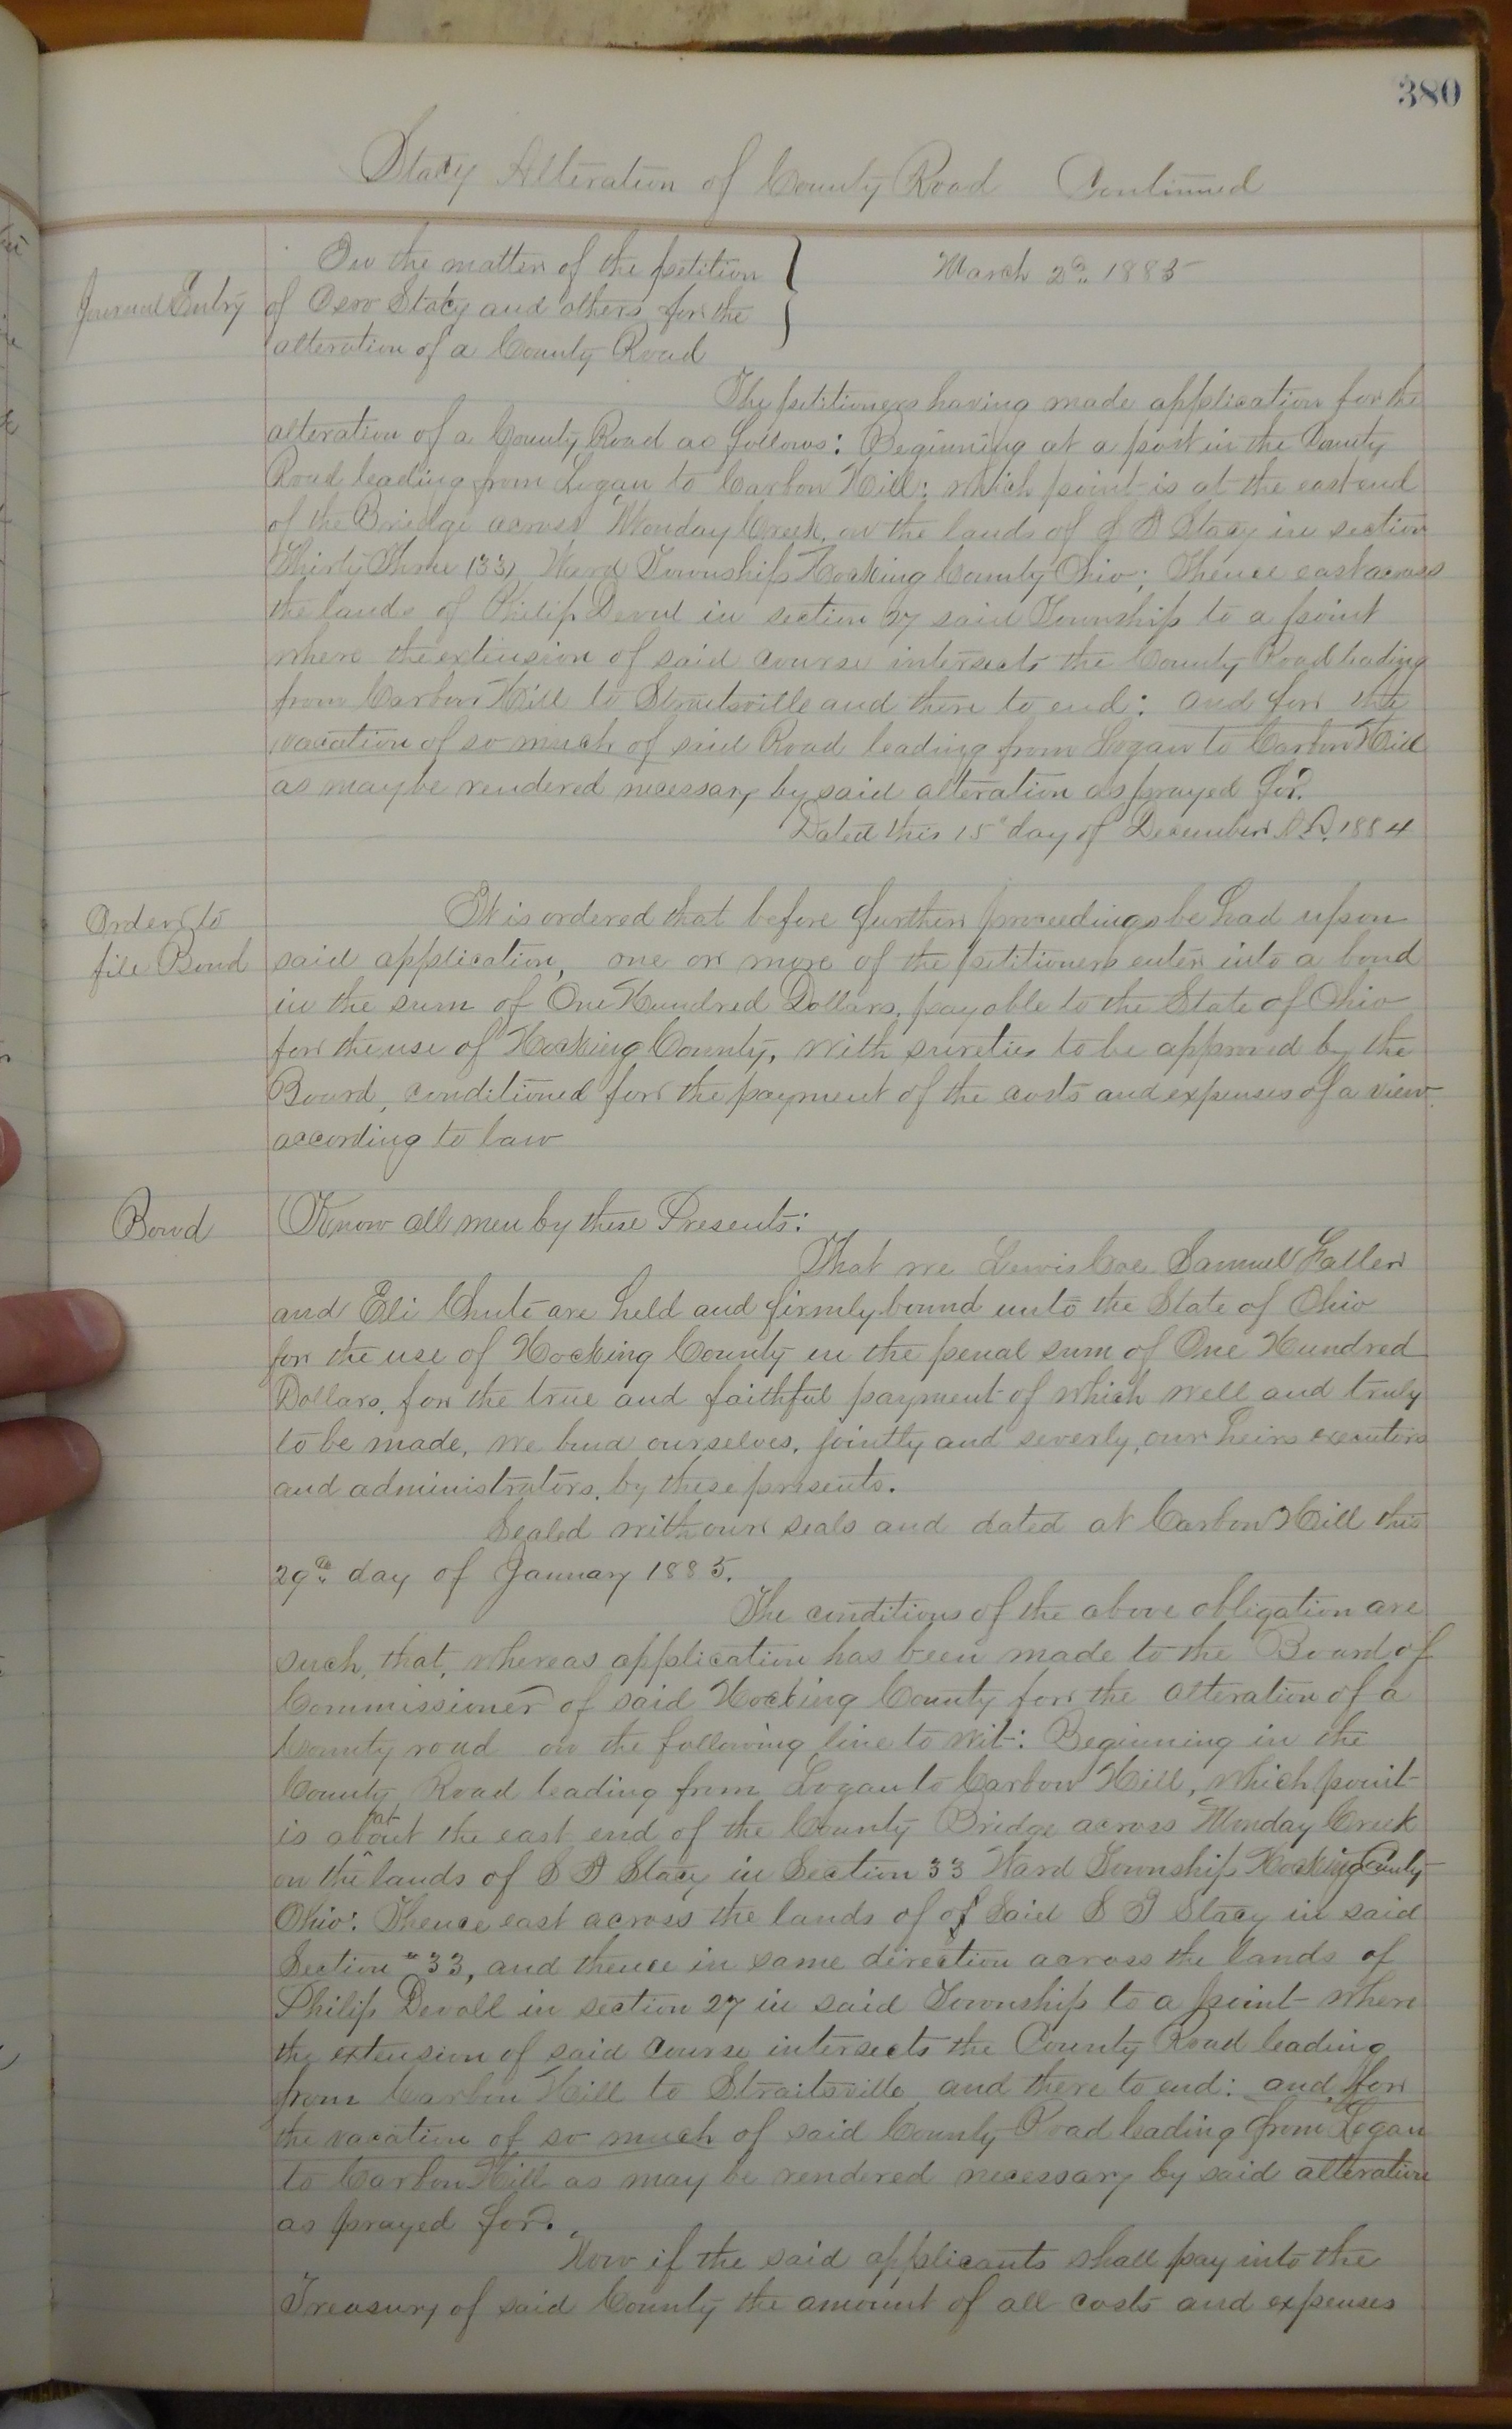 380
Stacy Alteration of County Road Continued
Journal Entry
On the matter of the petition
of Stacy and others for the
alteration of a County Road
March 2d. 1885
The petitioners having made application for the
alteration of a County Road as follows: Beginning at a post in the County
Road leading from Logan to Carbon Hill: which point is at the east end
of the Bridge across Monday Creek, on the lands of S I Stacy in section
Thirty Three (33) Ward Township Hocking County Ohio; Thence east across
the lands of Philip Devol in section 27 said Township to a point
where the extension of said course intersects the County Road leading
from Carbon Hill to Straitsville and there to end: and for the
vacation of so much of said Road leading from Logan to Carbon Hill
as may be rendered necessary by said alteration as prayed for.
Dated this 15" day of December A.D. 1884
Order to
file Bond
It is ordered that before further proceedings be had upon
said application, one or more of the petitioners enter into a bond
in the sum of One Hundred Dollars, payable to the State of Ohio
for the use of Hocking County, with sureties to be approved by the
Board, conditioned for the payment of the costs and expenses of a view
according to law
Bond
Know all men by these Presents:
That we Lewis Coe Samuel Faller
and Eli Chute are held and firmly bound unto the State of Ohio
for the use of Hocking County in the penal sum of One Hundred
Dollars, for the true and faithful payment of which well and truly
to be made, we bind ourselves, jointly and severly, our heirs executors
and administrators, by these presents.
Sealed with our seals and dated at Carbon Hill this
29th day of January 1885.
The conditions of the above obligation are
such, that, whereas application has been made to the Board of
Commissioner of said Hocking County for the alteration of a
County road on the following line to wit: Beginning in the
County Road leading from Logan to Carbon Hill, which point
is about at the east end of the County Bridge across Monday Creek
on the lands of S I Stacy in Section 33 Ward Township Hocking County
Ohio: Thence east across the lands of of Said S I Stacy in said
Section 33, and thence in same direction across the lands of
Philip Devoll in section 27 in said Township to a point where
the extension of said course intersects the County Road leading
from Carbon Hill to Straitsville and there to end: and for
the vacation of so much of said County Road leading from Logan
to Carbon Hill as may be rendered necessary by said alteration
as prayed for.
Now if the said applicants shall pay into the
Treasury of said County the amount of all costs and expenses